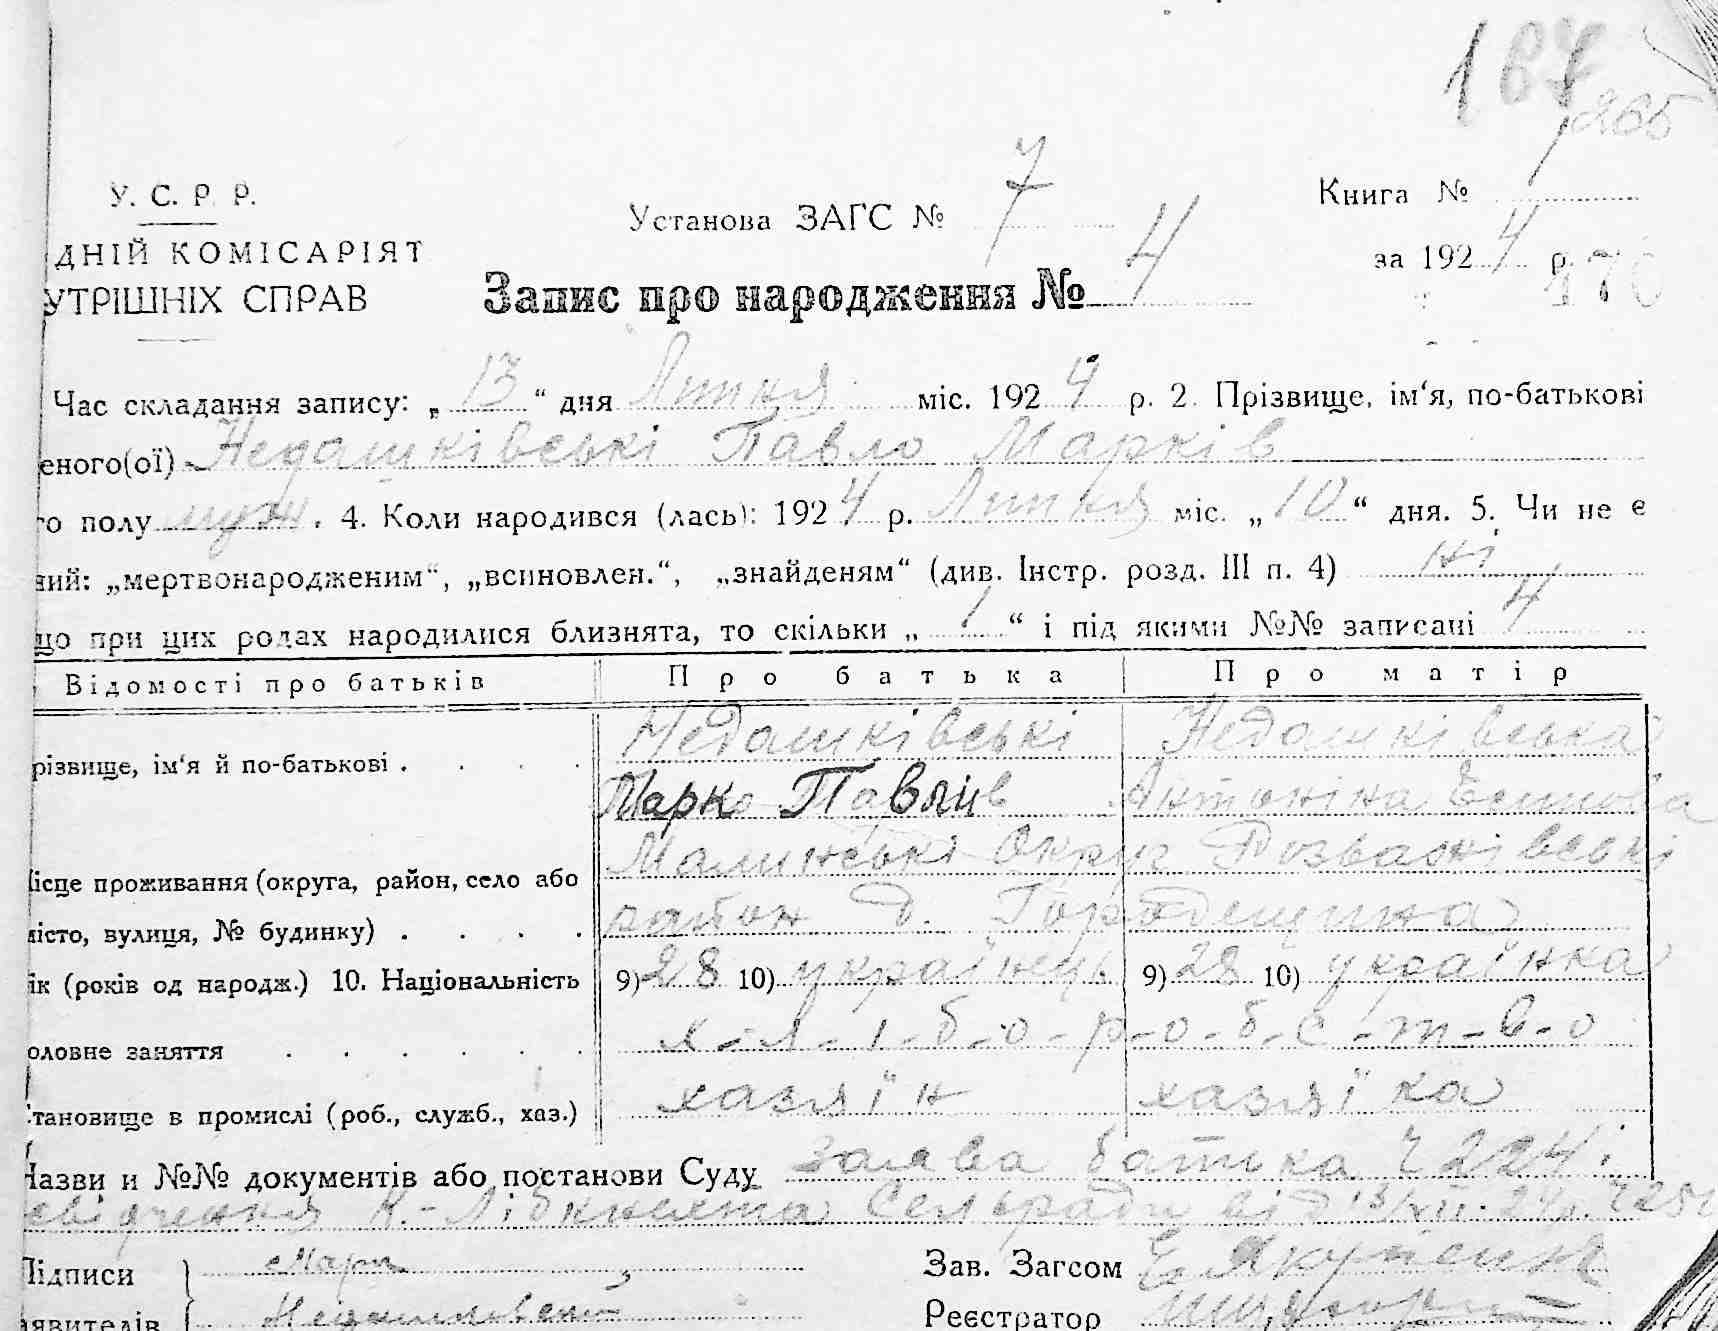 167
265
У. С. Р. Р.
Установа ЗАГС № 7
Книга №
ДНІЙ КОМІСАРІЯТ
за 1924 р.
170
УТРІШНІХ СПРАВ
Запис про народження № 4
Час складання запису: „13“ дня Липня міс. 1924 р. 2. Прізвище, ім‘я, по-батькові
еного(ої) Недашківські Павло Марків
го полу муж. 4. Коли народився (лась): 1924 р. Липня міс. „10“ дня. 5. Чи не є
ний: „мертвонародженим“, „всиновлен.“, „знайденям“ (див. Інстр. розд. III п. 4) ні
що при цих родах народилися близнята, то скільки „1“ і під якими №№ записані 4
Відомості про батьків Про батька Про матір
різвище, ім‘я й по-батькові . . . . Недашківські Недашківська
Марко Павлів Антоніна
Малинські Округ Розважівські
ісце проживання (округа, район, село або
район д. Городещина
місто, вулиця, № будинку) . . . .
ік (років од народж.) 10. Національність 9) 28 10) українець 9) 28 10) українка
оловне заняття . . . . . . х-л-і-б-о-р-о-б-с-т-в-о
тановище в промислі (роб., служб., хаз.) хазяїн хазяїка
Назви и №№ документів або постанови Суду заява батька Ч 224 і
свідчення К.-Лідкнвята Сельради від 13/VII. 24 р.
Підписи Марк Зав. Загсом
аявителів Недашковский Реєстратор